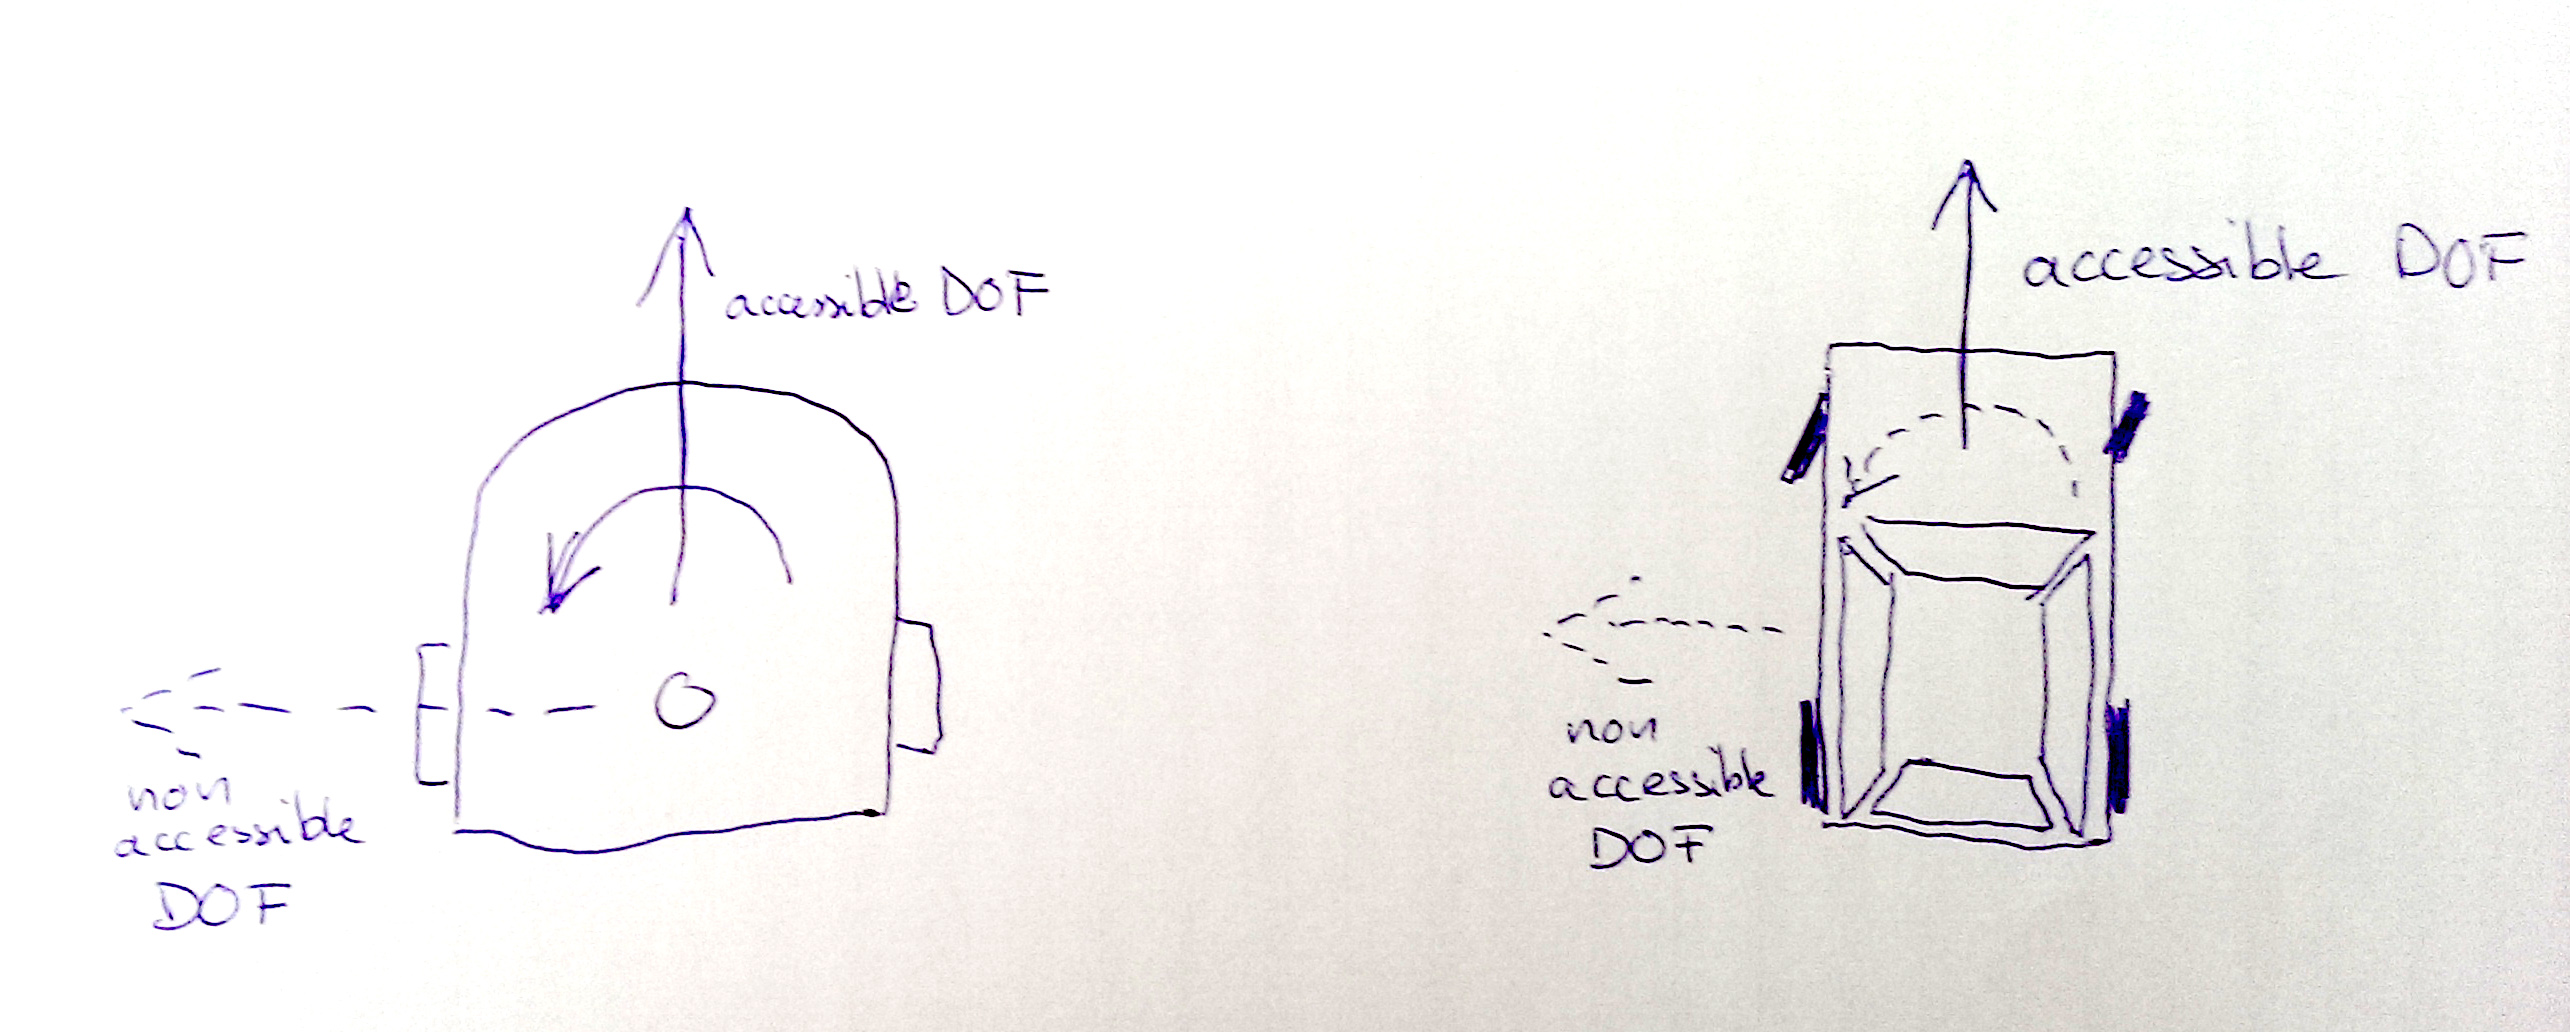 accessible DOF
non
accessible
DOF
accessible DOF
non
accessible
DOF